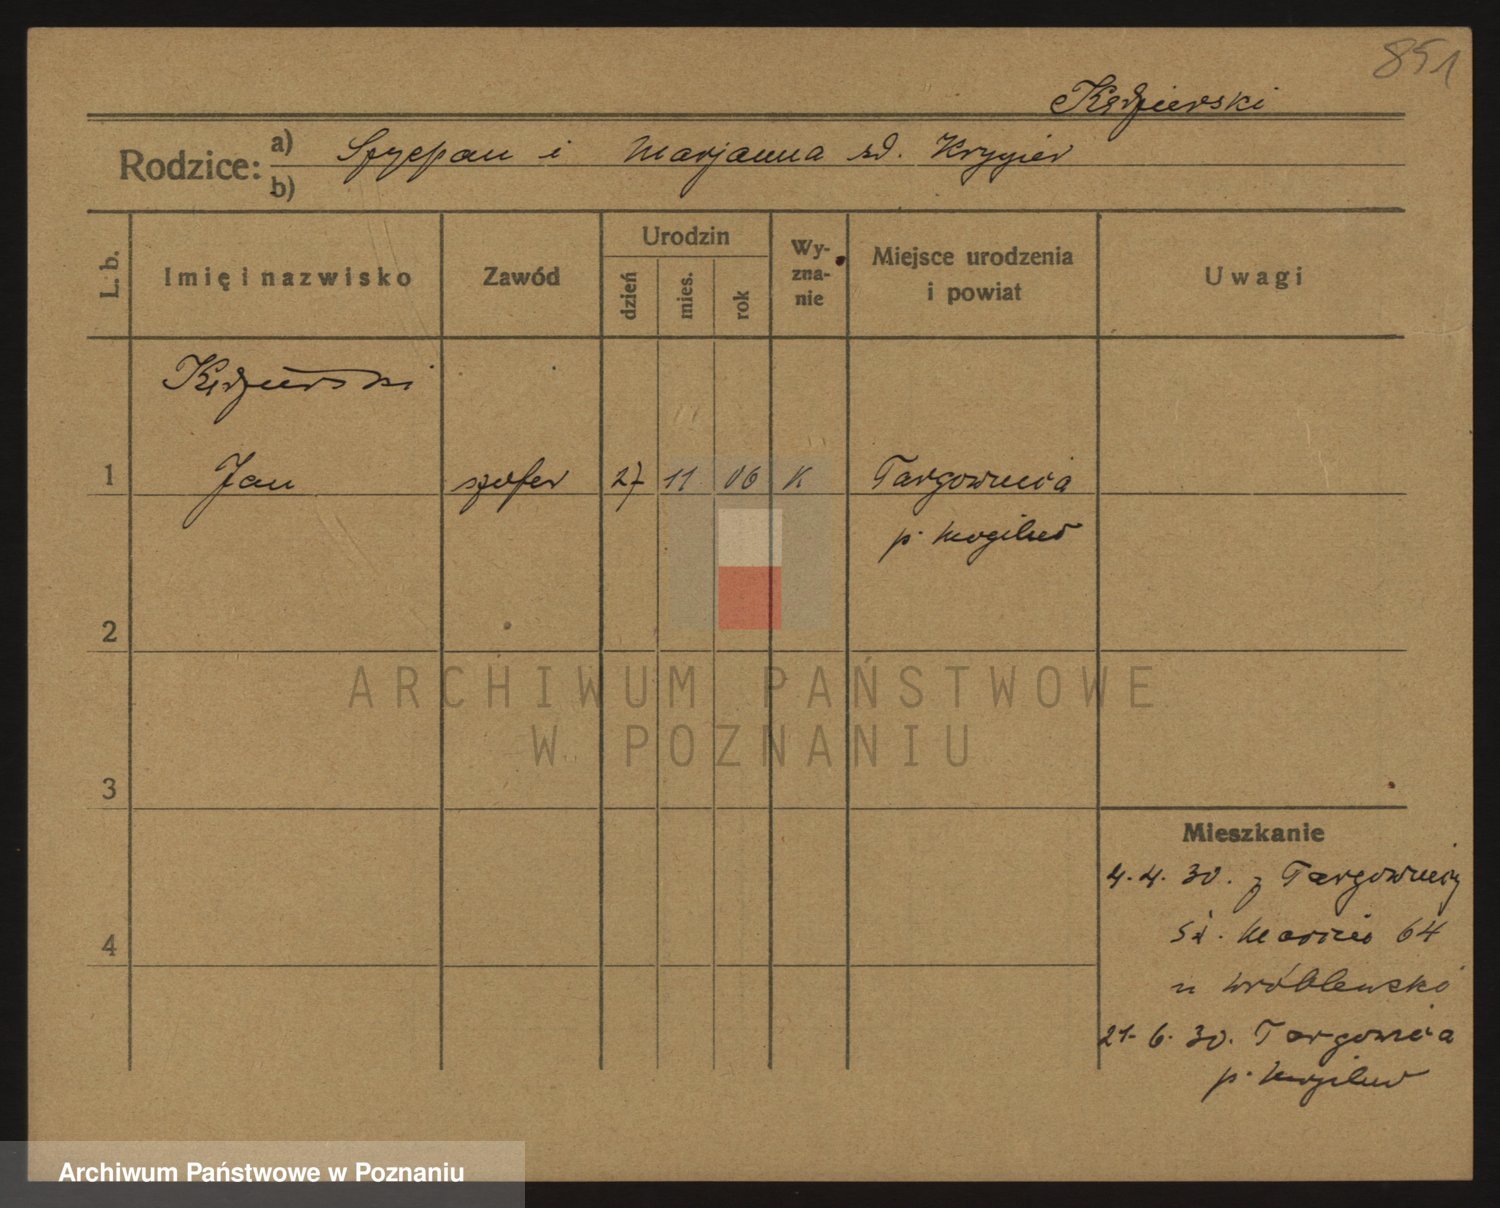 851
Kędzierski
Rodzice: a) Szczepan i Marjanna zd. Krygier
b)
L. b. Imię i nazwisko Zawód Urodzin dzień mies. rok Wy-zna-nie Miejsce urodzenia i powiat Uwagi
Kędzierski
1 Jan szofer 27 11 06 K Targownica
p. Mogilno
2
3
Mieszkanie
4.4.30. z Targownicy
4
Św. Marcin 64
u Wróblewski
21.6.30. Targownica
p. Mogilno
ARCHIWUM PAŃSTWOWE
W POZNANIU
Archiwum Państwowe w Poznaniu